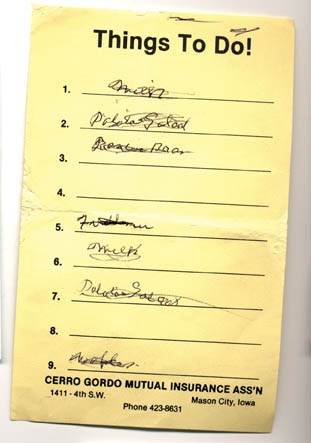 Things To Do!
1. Milk
2. Potato Salad
3.
4.
5.
6. Milk
7. Potato Salad
8.
9.
CERRO GORDO MUTUAL INSURANCE ASS'N
1411 - 4th S.W. Mason City, Iowa
Phone 423-8631